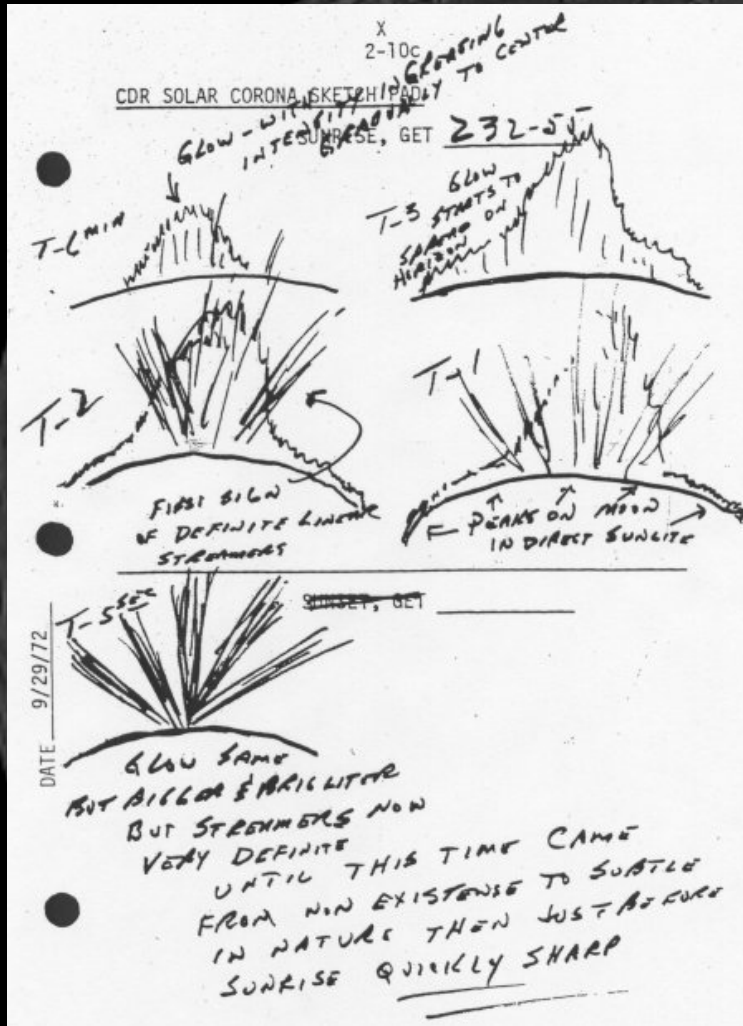 X
2-10c
CDR SOLAR CORONA SKETCH PAD
SUNRISE, GET 232-55
GLOW-WITH
INTENSITY INCREASING
GRADUALLY TO CENTER
T-6 MIN
T-3
GLOW
STARTS TO
SPREAD ON
HORIZON
T-2
FIRST SIGN
OF DEFINITE LINEAR
STREAMERS
T-1
PEAKS ON MOON
IN DIRECT SUNLITE
SUNSET, GET
T-5 SEC
DATE 9/29/72
GLOW SAME
BUT BIGGER & BRIGHTER
BUT STREAMERS NOW
VERY DEFINITE
UNTIL THIS TIME CAME
FROM NON EXISTENSE TO SUBTLE
IN NATURE THEN JUST BEFORE
SUNRISE QUICKLY SHARP